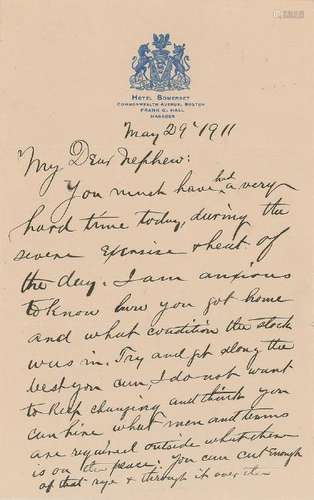 HOTEL SOMERSET
COMMONWEALTH AVENUE, BOSTON
FRANK C. HALL
MANAGER
May 29" 1911
My Dear Nephew:
You must have had a very
hard time today, during the
severe exersise & heat of
the day. I am anxious
to know how you got home
and what condition the stock
was in. Try and get along the
best you can, I do not want
to keep changing and think you
can hire what men and teams
are required outside what there
is on the place. You can cut enough
of that rye & through it over the